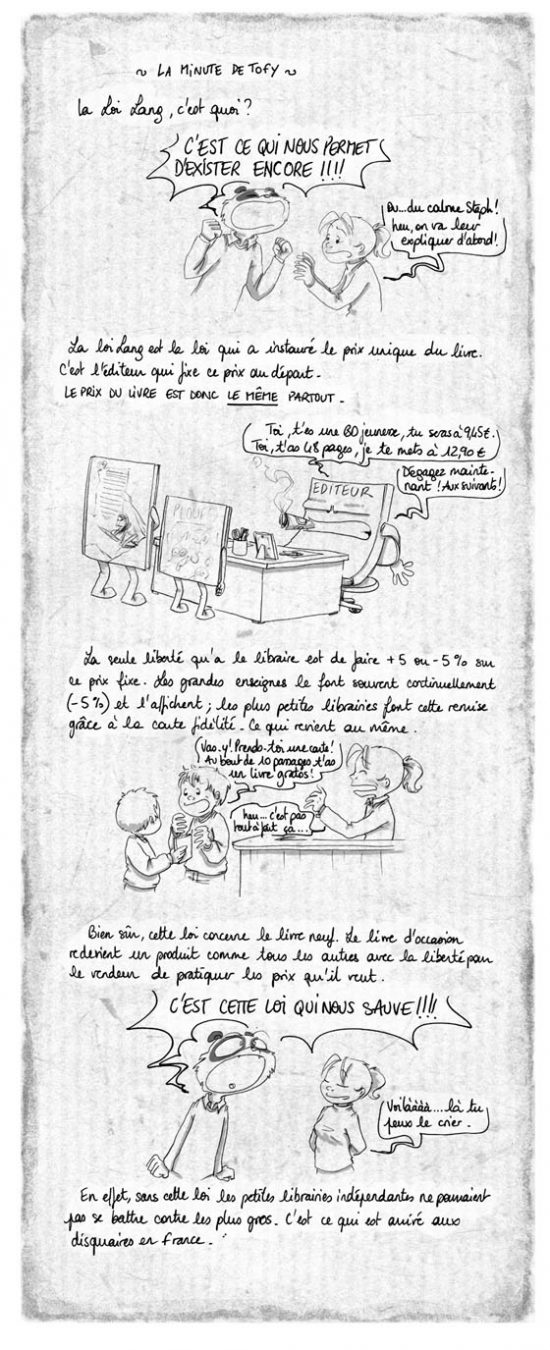 ~ LA MINUTE DE TOFY ~
La Loi Lang, c'est quoi?
C'EST CE QUI NOUS PERMET
D'EXISTER ENCORE !!!!
Du...du calme Steph!
heu, on va leur
expliquer d'abord!
La loi Lang est la loi qui a instauré le prix unique du livre.
C'est l'éditeur qui fixe ce prix au départ.
LE PRIX DU LIVRE EST DONC LE MÊME PARTOUT.
Toi, t'es une BD jeunesse, tu seras à 9,45€.
Toi, t'as 48 pages, je te mets à 12,90 €
Dégagez mainte-
nant ! Aux suivants!
EDITEUR
La seule liberté qu'a le libraire est de faire +5 ou -5 % sur
ce prix fixe. Les grandes enseignes le font souvent continuellement
(-5%) et l'affichent ; les plus petites librairies font cette remise
grâce à la carte fidélité. Ce qui revient au même.
Vas-y! Prends-toi une carte!
Au bout de 10 passages t'as
un livre gratos!
heu... c'est pas
tout à fait ça...
Bien sûr, cette loi concerne le livre neuf. Le livre d'occasion
redevient un produit comme tous les autres avec la liberté pour
le vendeur de pratiquer les prix qu'il veut.
C'EST CETTE LOI QUI NOUS SAUVE!!!!
Voilàààà....là tu
peux le crier.
En effet, sans cette loi les petites librairies indépendantes ne pourraient
pas se battre contre les plus gros. C'est ce qui est arrivé aux
disquaires en France.